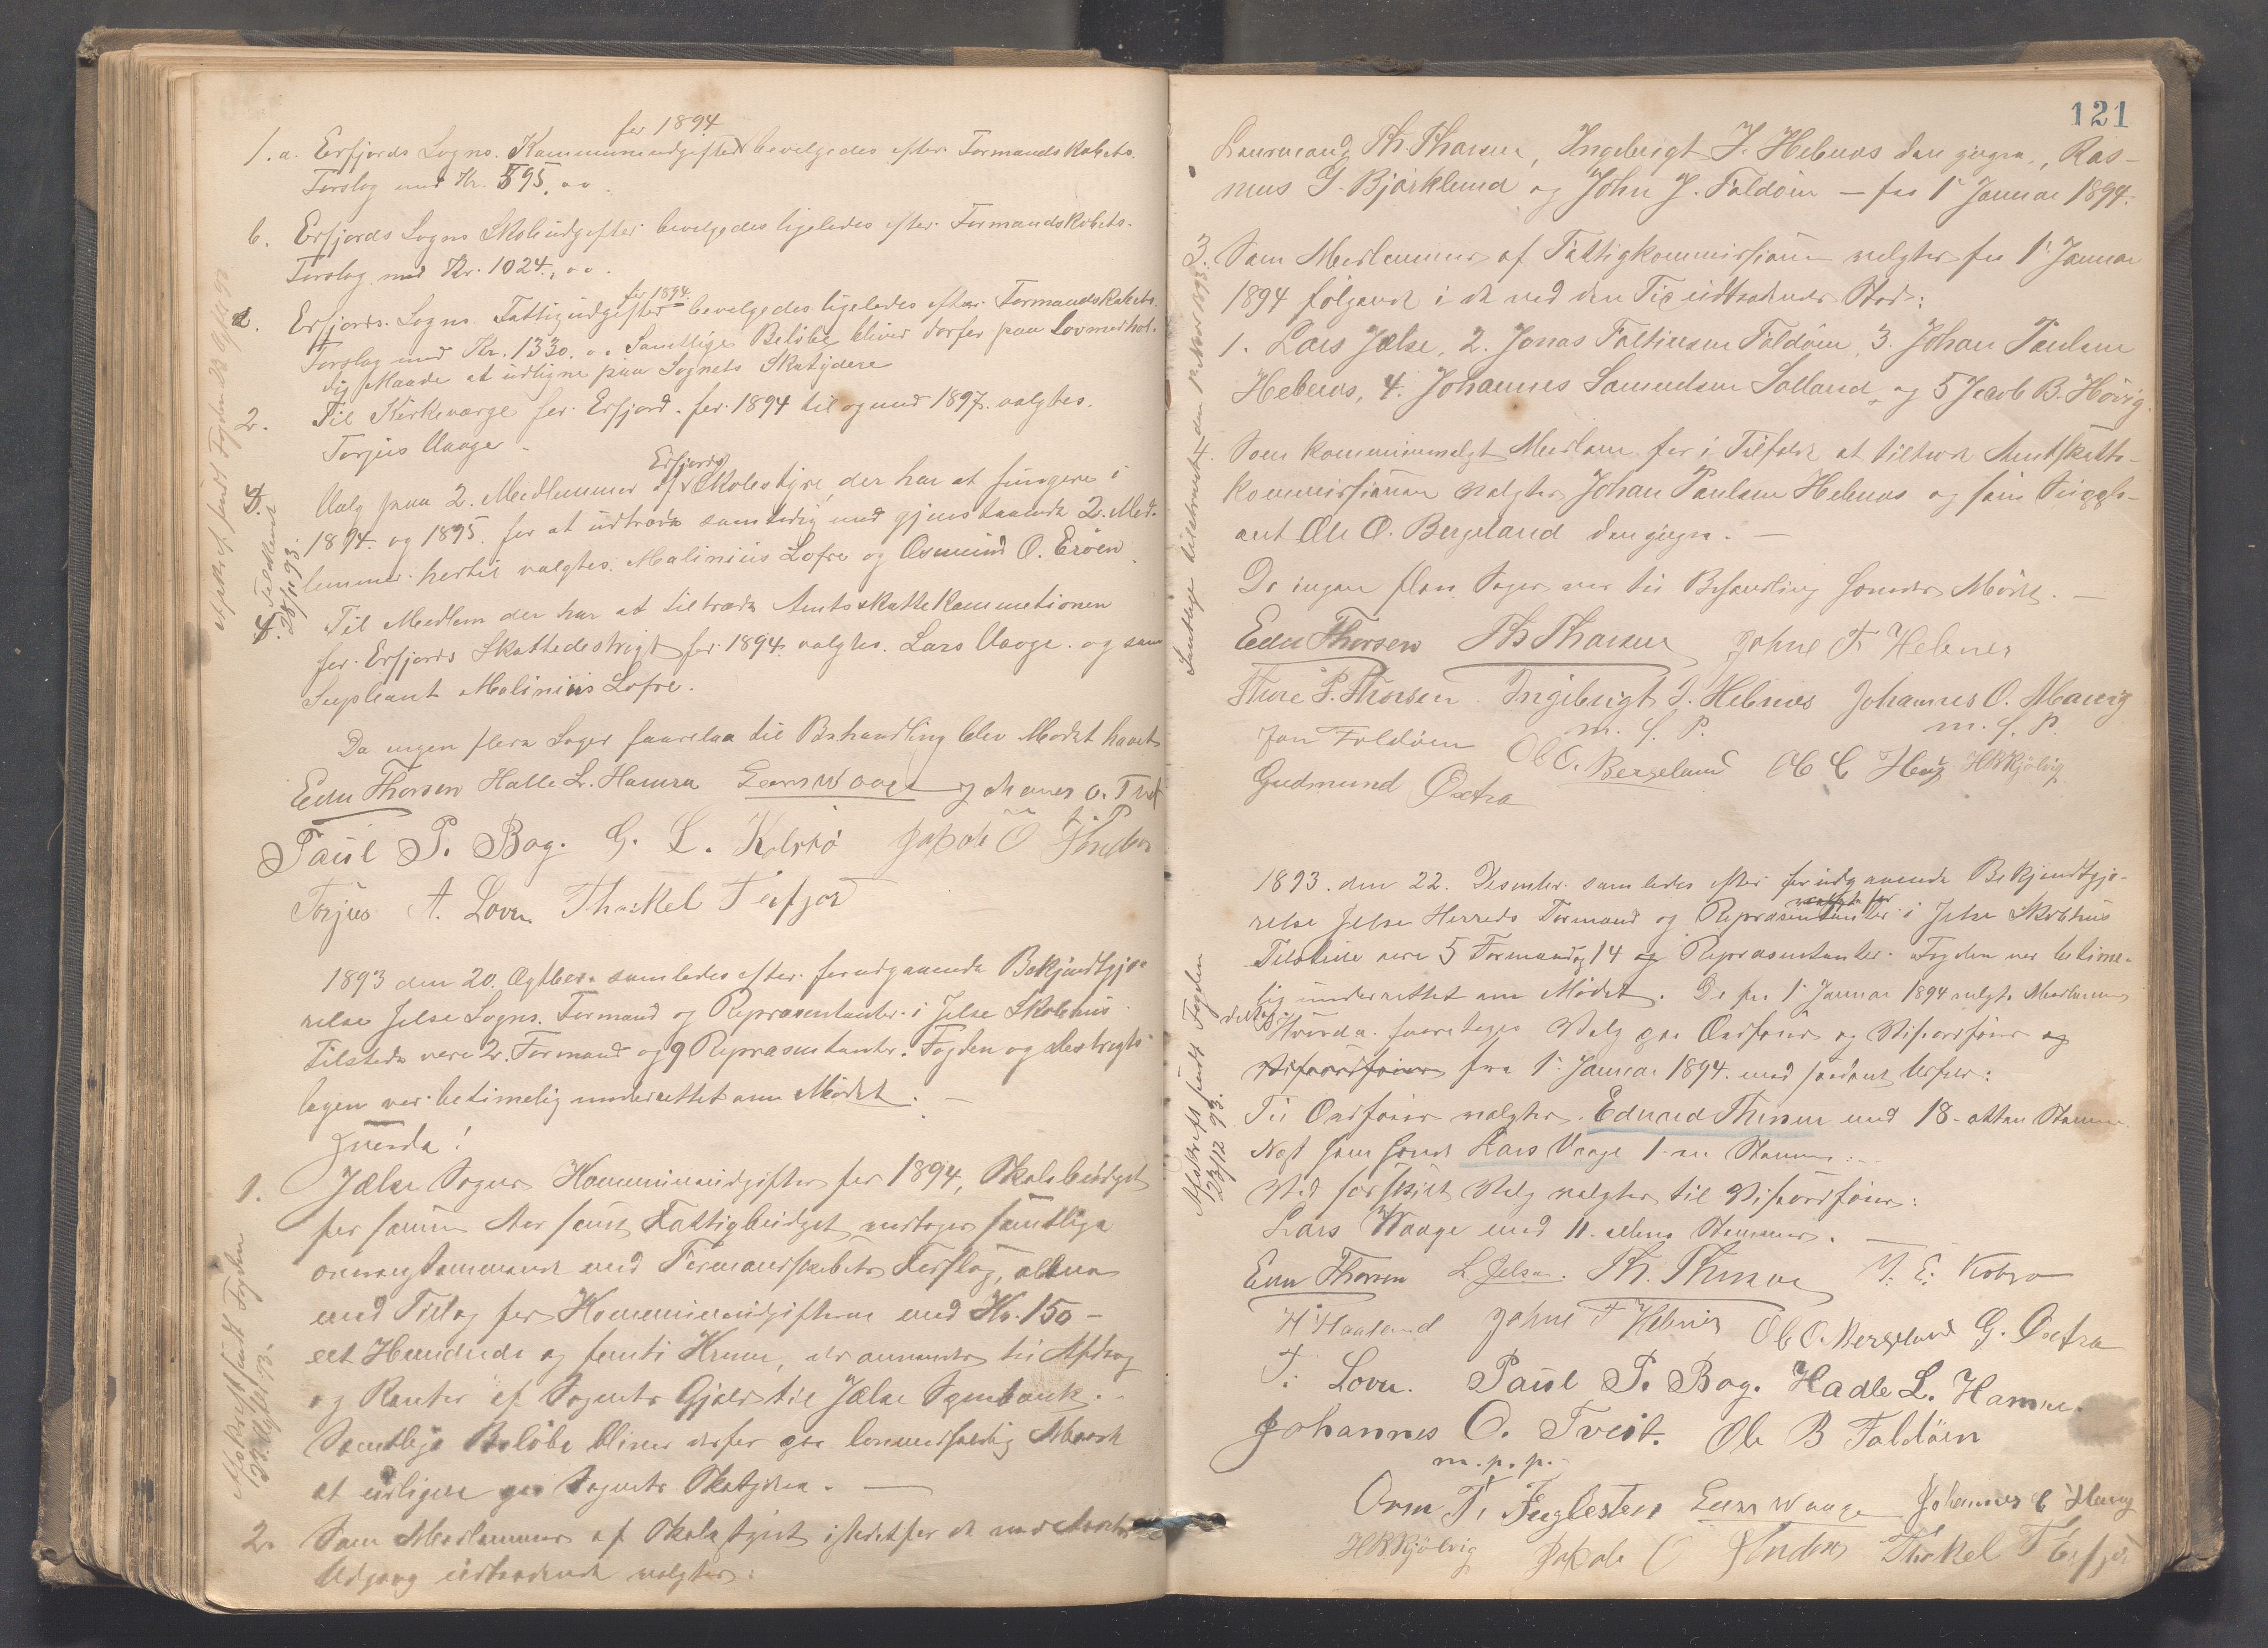 for 1894
1.a. Erfjords Sogns. Kommuneudgifter bevelgedes efter Formandskabets
Forslag med Kr. 595,00.
b. Erfjords Sogns Skoleudgifter bevelgedes ligeledes efter Formandskabets
Forslag med Kr. 1024,00.
for 1894.
c. Erfjords Sogns Fattigudgifter bevelgedes ligeledes efter Formandskabets
Forslag med Kr. 1330.00 Samtlige Beløbe bliver derfor paa Lovmedhol-
dig Maade at udligne paa Sognets Skatydere
2. Til Kirkeværge for Erfjord for 1894 til og med 1897 valgtes.
Torjus Vaage.
Erfjords
3. Valg paa 2. Medlemmer af Skolestyre, der har at fungere i
1894. og 1895. for at udtræde samtidig med gjenstaaende 2. Med-
lemmer. hertil valgtes. Malinius Lofre og Osmund O. Erøen.
4. Til Medlem der har at tiltræde Amtsskattekommetionen
for Erfjords Skattedestrigt for 1894 valgtes. Lars Vaage. og som
Supleant Malinius Lofre.
Da ingen flere Sager foorelaa til Behandling blev Mødet hævet
Edu Thorsen Halle L. Hamra Lars Waage Johanes O. Tveit
Paul P. Bog. G. L. Kolskø Jakob O
Torjus A. Lovn Thorkel T Erfjord
1893 den 20. Ogtber. samledes efter forudgaaende Bekjendtgjø-
relse Jelse Sogns. Formænd og Repræsentanter i Jelse Skolehus
Tilstede vare 2. Formænd og 9 Repræsentanter. Fogden og destrigts
lægen var betimelig underrettet om Mødet. —
Hvorda!
1. Jælse Sogns Kommuneudgifter for 1894, Skolebudget
for samme Aar samt Fattigbudget vedtoges samtlige
overensstemmende med Formandskabets Forslag, allene
med Tillæg for Kommuneudgifterne med Kr. 150 –
eet Hundrede og femti Kroner, der anvendes til Afdrag
og Renter af Sognets Gjæld til Jælse Sparebank.
Samtlige Beløbe bliver derfor paa lovmedholdig Maade
at udligne paa Sognets Skatydere. —
2. Som Medlemmer af Skolestyret istedetfor de ved Aarets
Udgang udtrædende valgtes:
Afskrift sendt Fogden
Afskrift sendt Fogden
121
Laurmand, Th. Thorsen, Ingebrigt J. Hebnes den yngre, Ras-
mus J. Bjørklund og John J. Foldøen – fra 1 Januar 1894.
3. Som Medlemmer af Fattigkommissionen valgtes fra 1. Januar
1894 følgende i de ved den Tid udtrædendes Sted:
1. Lars Jelse, 2. Jonas Foltinsen Foldøen, 3. Johan Paulsen
Hebnes, 4. Johannes Samuelsen Solland, og 5 Jacob B. Høvig.
4. Som kommunevalgt Medlem for i Tilfælde at tiltræde Amtsskatte-
kommissionen valgtes Johan Paulsen Hebnes og som Supple-
ant Ole O. Bergeland den yngre. —
Da ingen flere Sager var til Behandling hævedes Mødet. —
Edu Thorsen Th Thorsen Johne T. Hebnes
Thore P. Thorsen. Ingebrigt J. Hebnes Johannes O. Marvig
m. f. P. m. f. P.
Jon Foldøen Ole O. Bergeland Ole C Haug HRKjølvig
Gudmund Øxtra
1893. den 22. Desember samledes efter forudgaaende Bekjendtgjø-
relse Jelse Herreds Formænd og Repræsentanter i Jelse Skolehus
Tilstede vare 5 Formænd og 14 og Repræsentanter. Fogden var betime-
lig underrettet om Mødet. De fra 1 Januar 1894 valgte Medlemmer
deltog
Hvorda. foretages Valg paa Ordfører og Viseordfører og
Viseordfører fra 1. Januar 1894 med saadant Udfald:
Til Ordfører valgtes. Edvard Thorsen med 18 - atten Stemmer
Næst ham havde Lars Vaage 1 - en Stemme. —
Ved særskilt Valg valgtes til Viseordfører:
Lars Waage med 11 - elleve Stemmer. —
Edu Thorsen L Jelsa. Th. Thorsen
H Haaland Johne T Hebnes Ole O. Bergeland G. Øxtra
T. Lovn. Paul P. Bog. Hadle L. Hamre.
Johannes O. Tveit. Ole B Foldøen
m. p. p.
Orm T. Fuglesten Lars Waage Johannes C Haug
HRKjølvig Jakob O Thorkel T Erfjord
28/11 93.
23/12 93.
Afskrift sendt Fogden